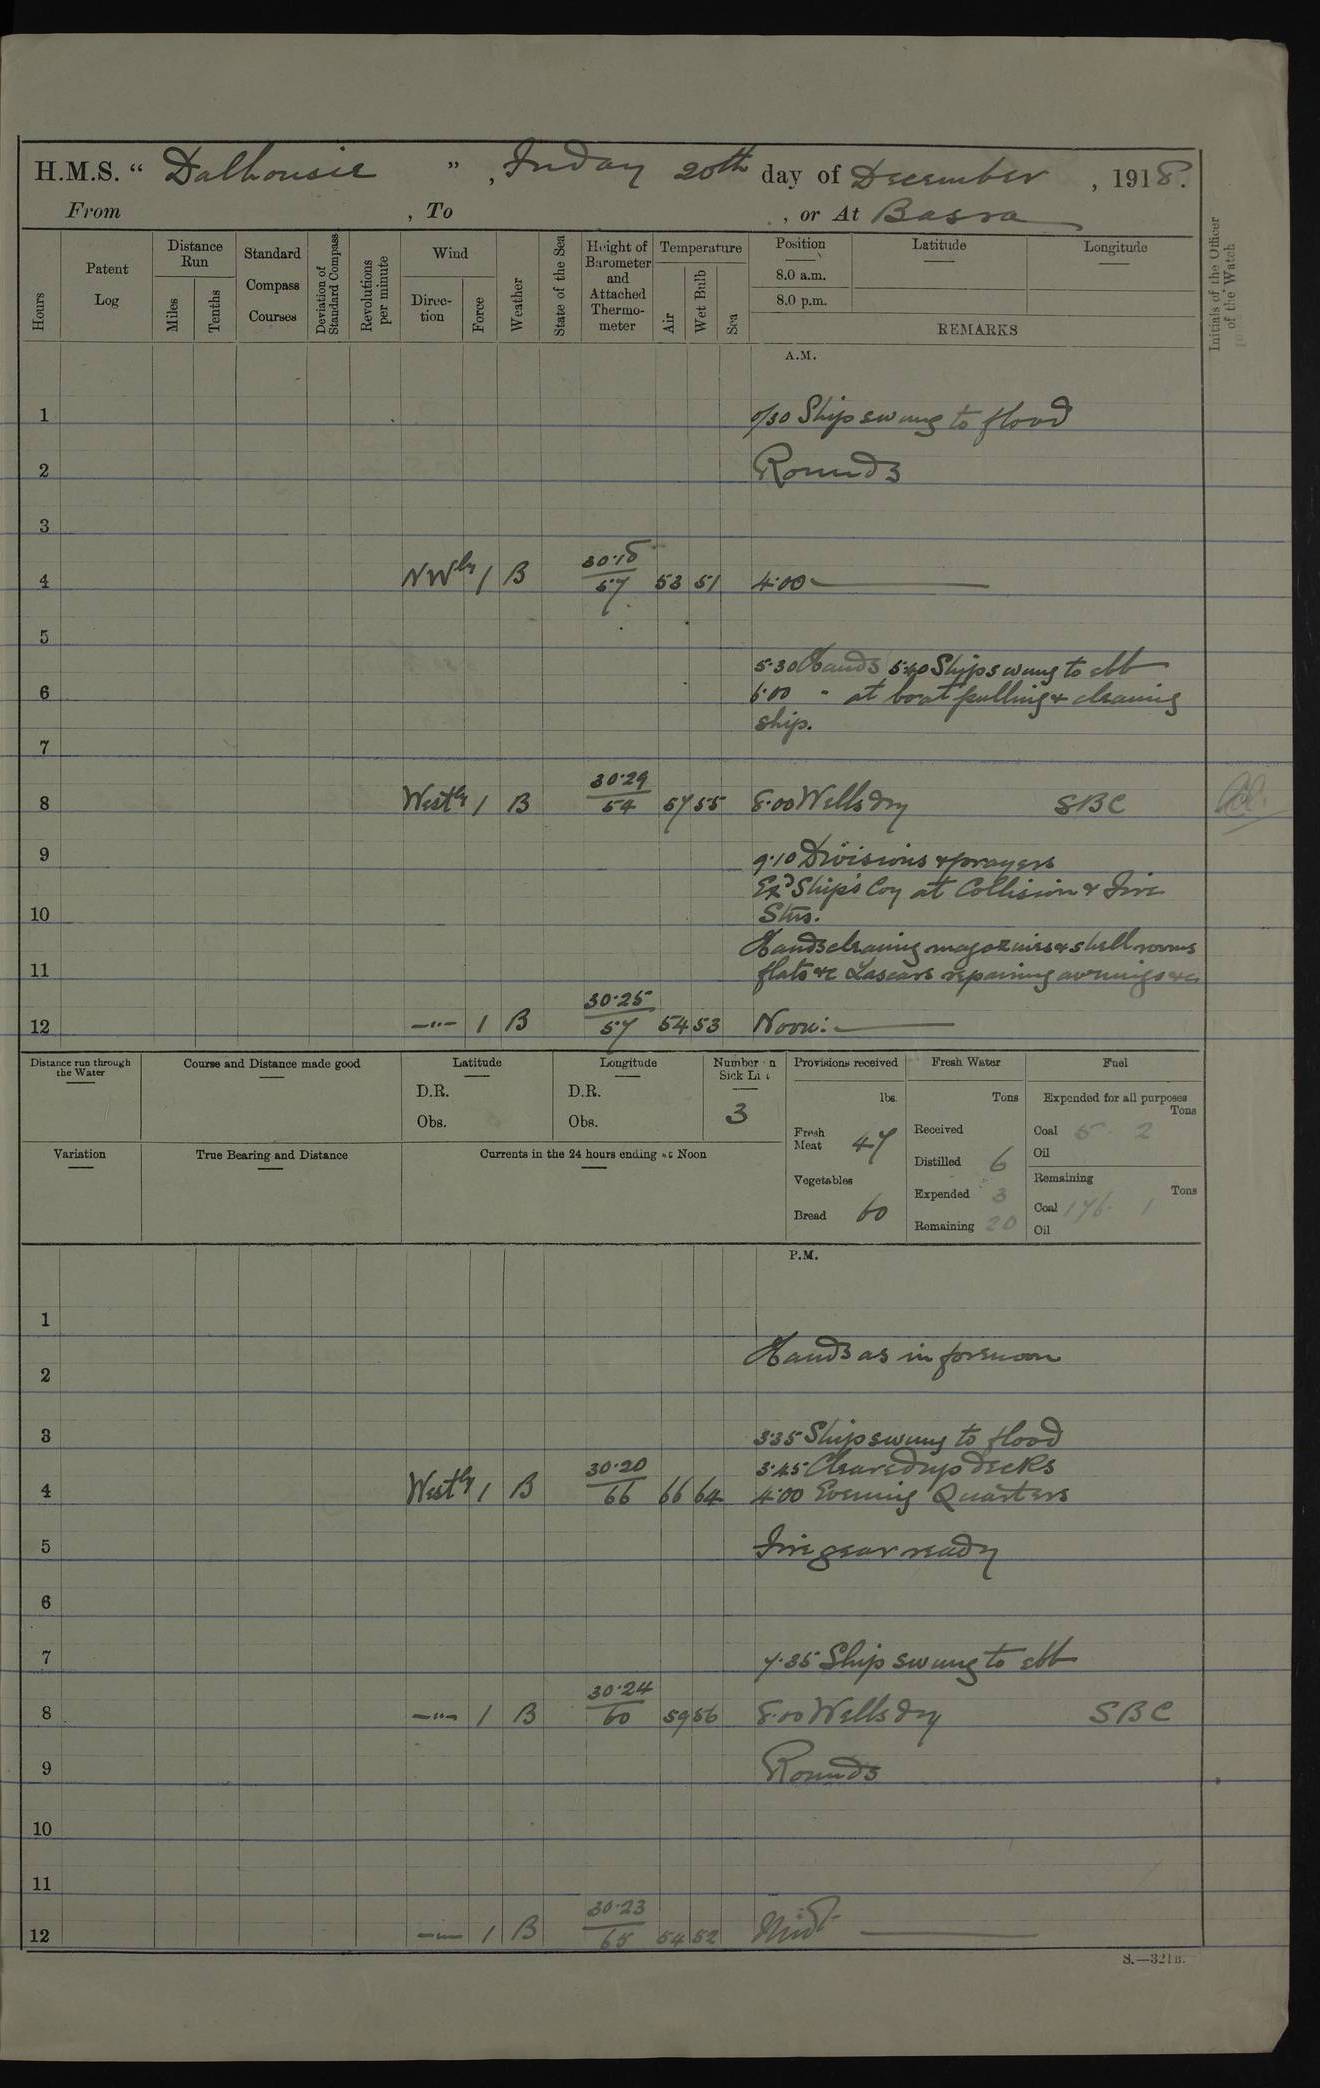 H.M.S. “ Dalhousie ” , Friday 20th day of December , 1918.
From , To , or At Basra
Hours
Patent Log
Distance Run
Miles
Tenths
Standard Compass Courses
Deviation of Standard Compass
Revolutions per minute
Wind
Direction
Force
Weather
State of the Sea
Height of Barometer and Attached Thermometer
Temperature
Air
Wet Bulb
Sea
Position
8.0 a.m.
8.0 p.m.
Latitude
Longitude
REMARKS
Initials of the Officer of the Watch
A.M.
1 0/30 Ship swung to flood
2 Rounds
3
4 NWly 1 B 30.18 57 53 51 4.00
5
5.30 Hands 5.40 Ship swung to ebb
6 6.00 " at boat pulling & cleaning
ship.
7
8 Westly 1 B 30.29 54 57 55 8.00 Wells dry SBC
9 9.10 Divisions & prayers
Exd Ship's Coy at Collision & Fire
10 Stns.
Hands cleaning magazines & shell rooms
11 flats &c Lascars repairing awnings &c
12 —"— 1 B 30.25 57 54 53 Noon:
Distance run through the Water
Course and Distance made good
Latitude
D.R.
Obs.
Longitude
D.R.
Obs.
Number on Sick List
3
Provisions received
lbs.
Fresh Meat 47
Vegetables
Bread 60
Fresh Water
Tons
Received
Distilled 6
Expended 3
Remaining 20
Fuel
Expended for all purposes
Tons
Coal 5. 2
Oil
Remaining
Tons
Coal 176. 1
Oil
Variation
True Bearing and Distance
Currents in the 24 hours ending at Noon
P.M.
1
2 Hands as in forenoon
3 3.35 Ship swung to flood
3.45 Cleared up decks
4 Westly 1 B 30.20 66 66 64 4.00 Evening Quarters
5 Fire gear ready
6
7 7.35 Ship swung to ebb
8 —"— 1 B 30.24 60 59 56 8.00 Wells dry SBC
9 Rounds
10
11
12 —"— 1 B 30.23 65 54 52 Midt
S.—321B.